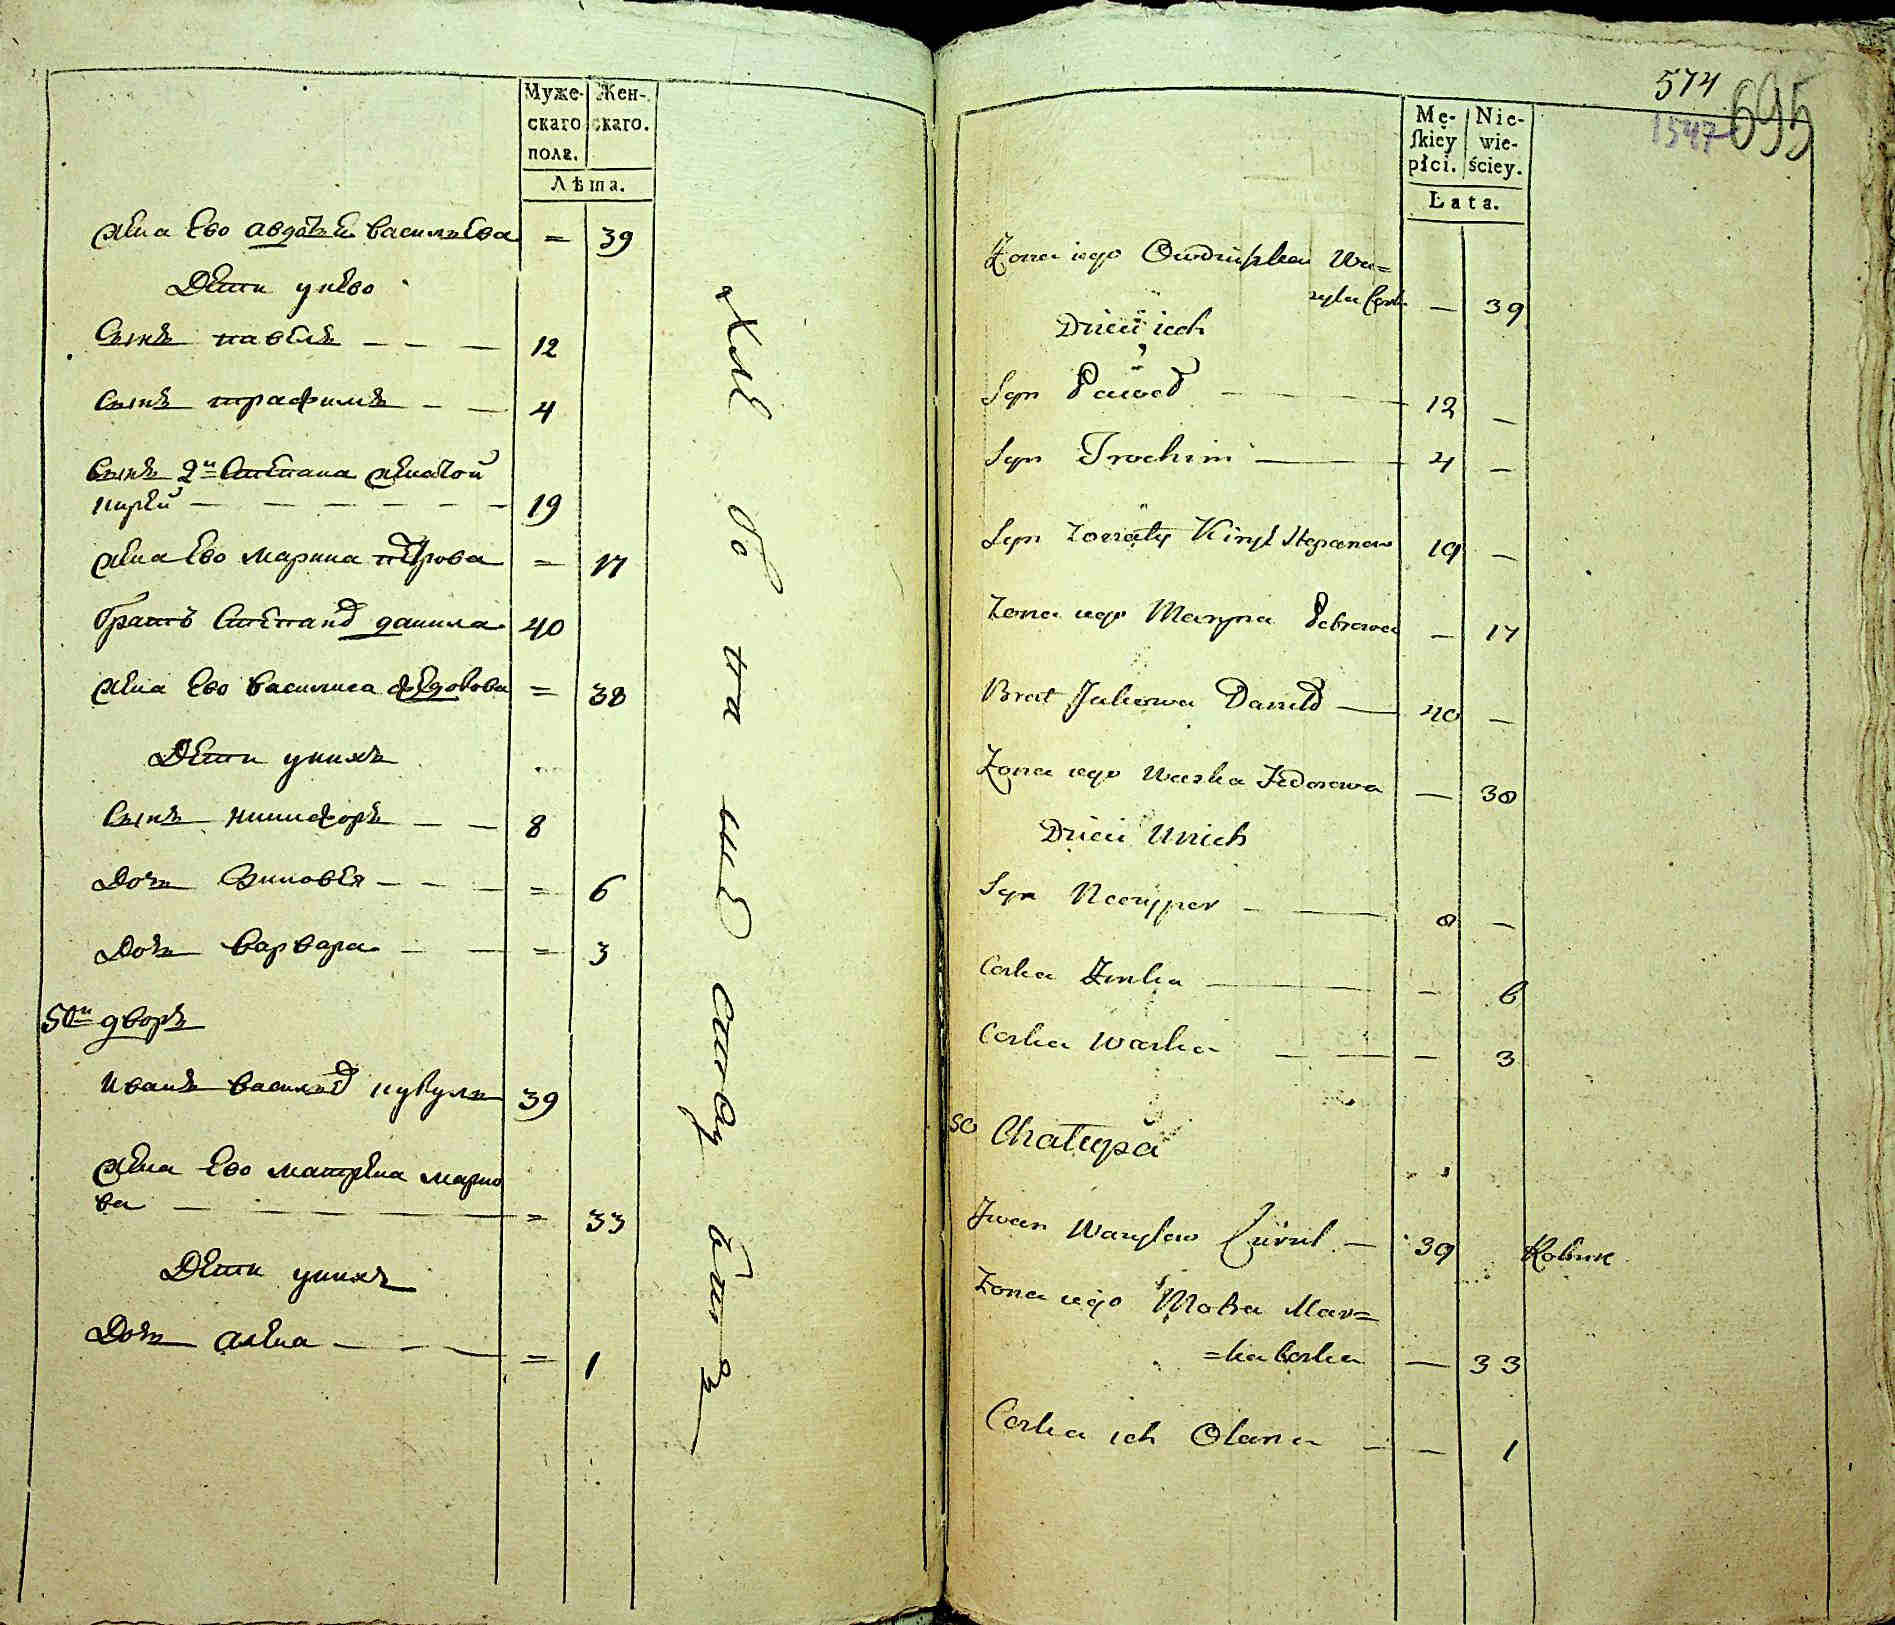 Муже-
скаго
полꙋ.
Жен-
скаго.
Лѣта.
жена Ево авдотья василиева = 39
Дети унево
Сынъ павелъ — — — 12
Сынъ трафимъ — — 4
Сынъ 2й Степана женатой
кирей — — — — — — 19
жена Ево марина петрова = 17
братъ Степана данила 40
жена Ево василиса федорова = 38
Дети унихъ
Сынъ никифоръ — — 8
Дочь Зиновея — — — = 6
Дочь варвара — — = 3
50й дворъ
иванъ василиев 39
жена Ево матрена марко
ва — — — — — — = 33
Дети унихъ
Дочь алена — — — = 1
574
1547
695
Mę-
ſkiey
płci.
Nie-
wie-
ściey.
Lata.
Żona iego Wa=
zyla Cork — 39
Dzieci ich
Syn Paweł — — — — 12 —
Syn Trochim — 4 —
Syn Żonaty Kirył Stepanow 19 —
Żona iego Maryna Petrowa — 17
Brat Daniło — 40 —
Żona iego Waska Fedorowa — 38
Dzieci Unich
Syn — — 8 —
Corka Zinka — — — 6
Corka Warka — — — 3
50 Chałupa
Iwan Wasylow — 39
Żona iego Motra Mar=
=ka Corka — 33
Corka ich Olana — — 1